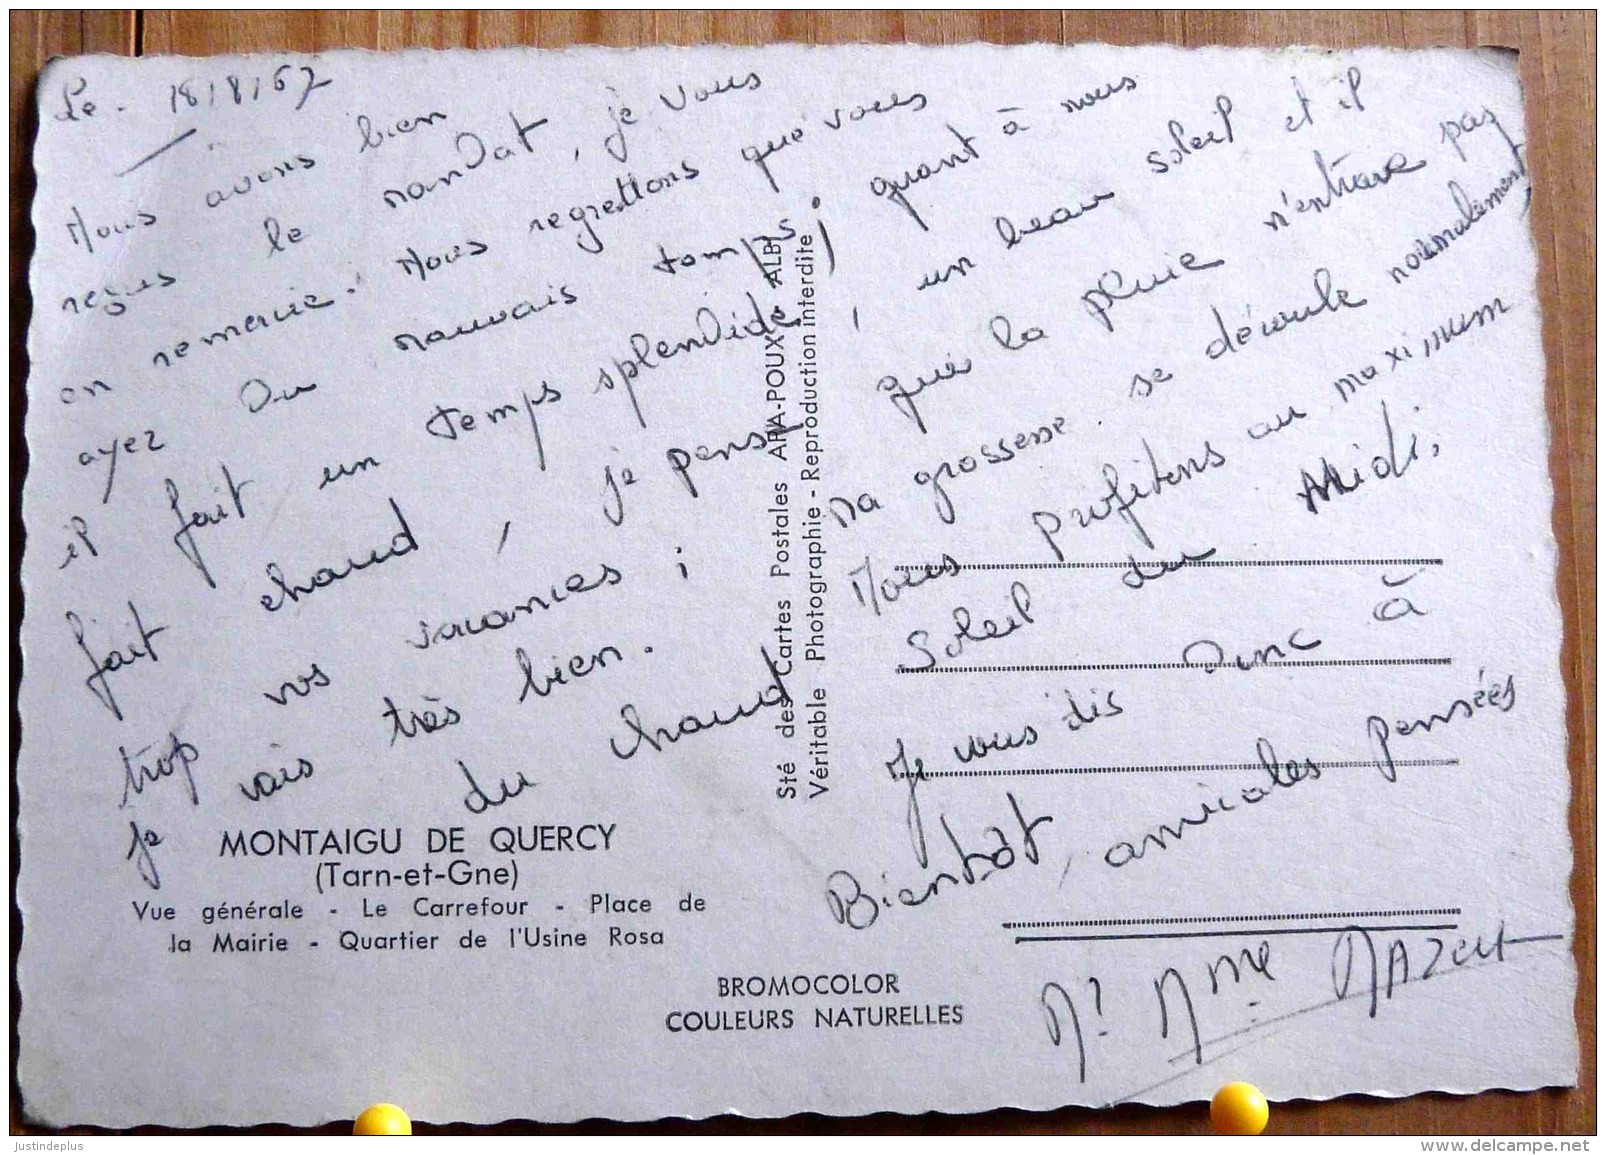 Le. 18/8/67
Nous avons bien
reçus le mandat, je vous
en remercie. Nous regrettons que vous
ayez du mauvais temps; quant à nous
il fait un temps splendide, un beau soleil et il
fait chaud, je pense que la pluie n'entrave pas
trop vos vacances; ma grossesse se déroule normalement,
je vais très bien. Nous profitons au maximum
du chaud Soleil du Midi,
Je vous dis donc à
Bientôt, amicales pensées
Mr Mme
MONTAIGU DE QUERCY
(Tarn-et-Gne)
Vue générale - Le Carrefour - Place de
la Mairie - Quartier de l'Usine Rosa
BROMOCOLOR
COULEURS NATURELLES
Sté des Cartes Postales APA-POUX - ALBI
Véritable Photographie - Reproduction interdite
justindeplus
www.delcampe.net